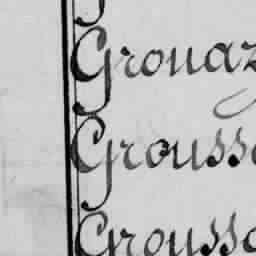 Grouaz
Grousse
Grousso